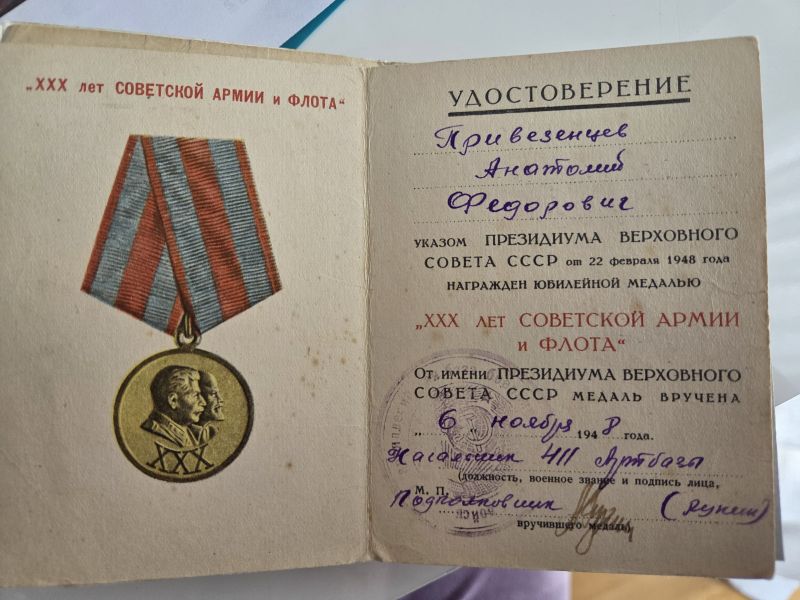 „XXX лет СОВЕТСКОЙ АРМИИ и ФЛОТА“
XXX
УДОСТОВЕРЕНИЕ
Привезенцев
Анатолий
Федорович
УКАЗОМ ПРЕЗИДИУМА ВЕРХОВНОГО
СОВЕТА СССР от 22 февраля 1948 года
НАГРАЖДЕН ЮБИЛЕЙНОЙ МЕДАЛЬЮ
„XXX ЛЕТ СОВЕТСКОЙ АРМИИ
и ФЛОТА“
От имени ПРЕЗИДИУМА ВЕРХОВНОГО
СОВЕТА СССР МЕДАЛЬ ВРУЧЕНА
„6“ ноября 1948 года.
Начальник 411 Артбазы
(должность, военное звание и подпись лица,
М. П. Подполковник
вручившего медаль)